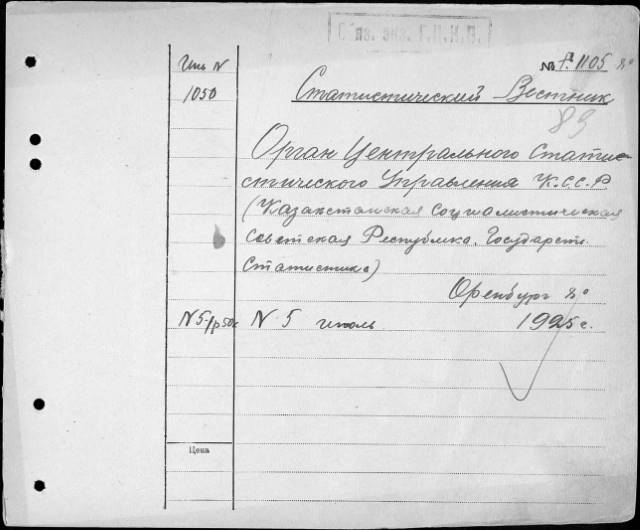 Обяз. экз. Г.П.К.П.
№ Р. 1105 8°
Инв N
1050
Статистический Вестник
89
Орган Центрального Статис-
стического Управления К.С.С.Р
(Казакстанская Социалистическая
Советская Республика. Государств.
Статистика)
Оренбург 8°
N5-1р50к N 5 июль 1925 г.
Цена